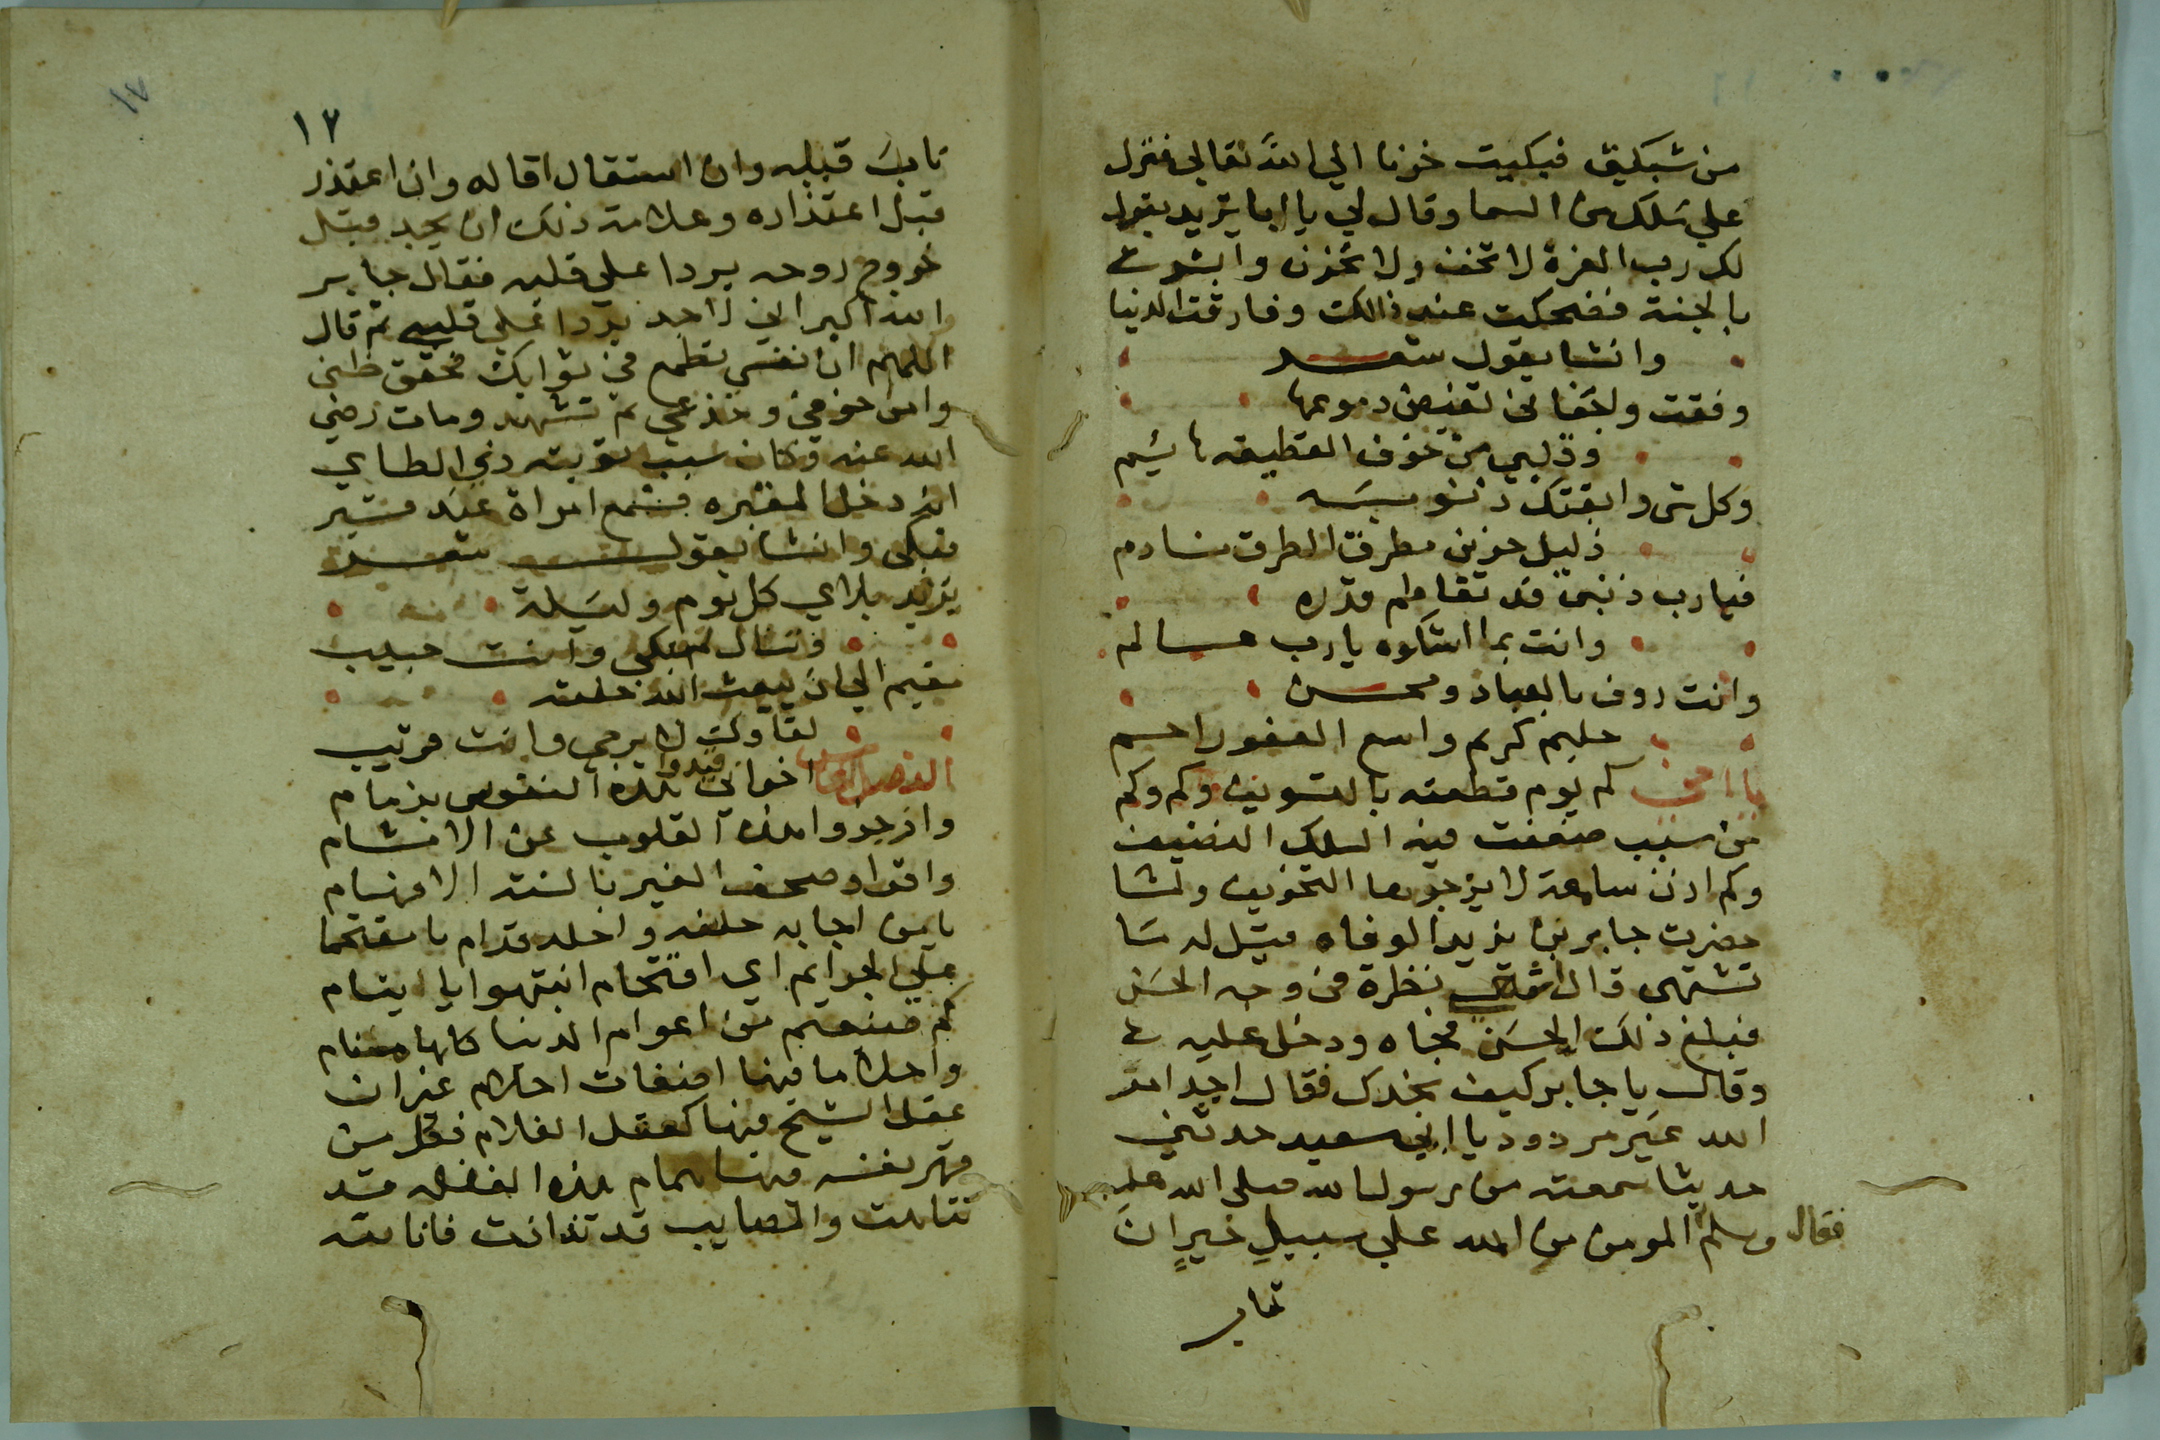 من شبكيتي فبكيت خوفا الي الله تعالي فنزل
علي ملك من السما وقال لي يا ابا يزيد يقول
لك رب العزة لا تخف ولا تحزن وابشر
بالجنة فضحكت عند ذالك وفارقت الدنيا
وانشا يقول شعر
وقفت واجفاني تفيض دموعها
وقلبي من خوف القطيعه هايم
وكل شي وابقتك ذنوبه
ذليل حزين مطرق الطرف نادم
فيارب ذنبي قد تعاظم قدره
وانت بما اشكوه يارب عسالم
وانت روف بالعباد ومحسن
حليم كريم واسع العفو راحم
يا اخي كم يوم قطعته بالتسويف وكم وكم
من سبب ضعفت فيه السلك الضنيف
وكم اذن سامعة لا يزجرها التخويف ولمشا
حضرت جابر بن يزيد الوفاه قيل له مَا
تشتهي قال اشتهي نظرة في وجه الحسَن
فبلغ ذلك الحسَن فجاه ودخل عليه
وقال يا جابر كيف تجدك فقال اجد امر
الله غير مردود يا ابي سعيد حدثني
حديثا سمعته من رسول الله صلي الله عليه
فقال وسلم المومن من الله علي سبيل خير ان
تاب
١٧
١٢
تابَ قبله وان استقال اقاله وان اعتذر
قبل اعتذاره وعلامة ذلك ان يجد قبل
خروج روحه بردا علي قلبه فقال جابر
الله اكبر اني لاجد بردا علي قلبي ثم قال
اللهم ان نفسي تطمع في ثوابك فحقق ظني
وامن خوفي وجزعي ثم تشهد ومات رضي
الله عنه وكان سبب توبته دني الطاي
انه دخل المقبره فسمع امراة عند قبر
فبكي وانشا يقول شعر
يزيد بلاي كل يوم وليَلة
وتسال لم تبكي وانت حبيب
مقيم الي ان يبعث الله خلقه
لقاوك لا يرجي وانت قريب
الفصل اخواني قيدوا هذه النفوس بزمام
وازجروا هذه القلوب عن الاثام
واقراو صحف الغير بالسنة الافهام
يا من اجابه خلفه واخله قدام يا مقتحما
علي الجرايم اي اقتحام انتبهوا يا ايتام
كم ضيعتم من اعوام الدنيا كلها منام
واحلا ما فيها اضغاث احلام غير ان
عقل الشيخ فيها كعقل الغلام فكل من
قهر نفسه فهنا همام هذه الغفله قد
تناهت والمصايب قد تدانت فانا لله